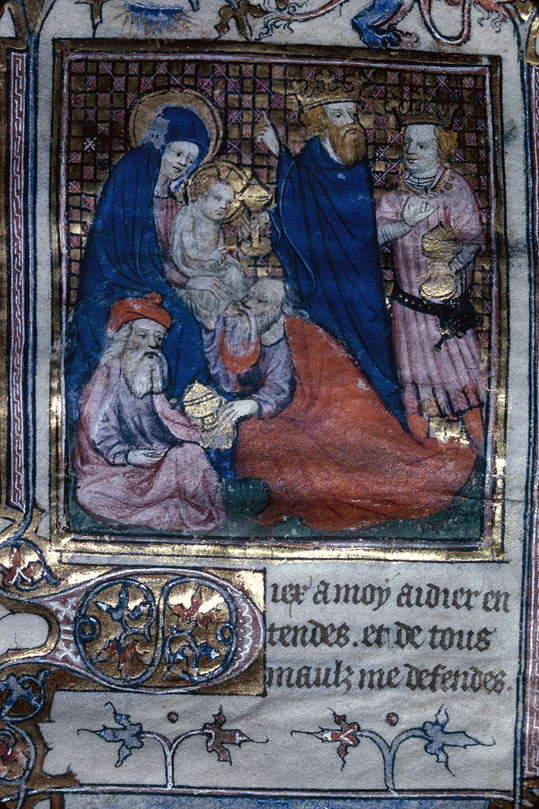 iex a moy aidier en
tendes. et de tous
maulz me defendes.